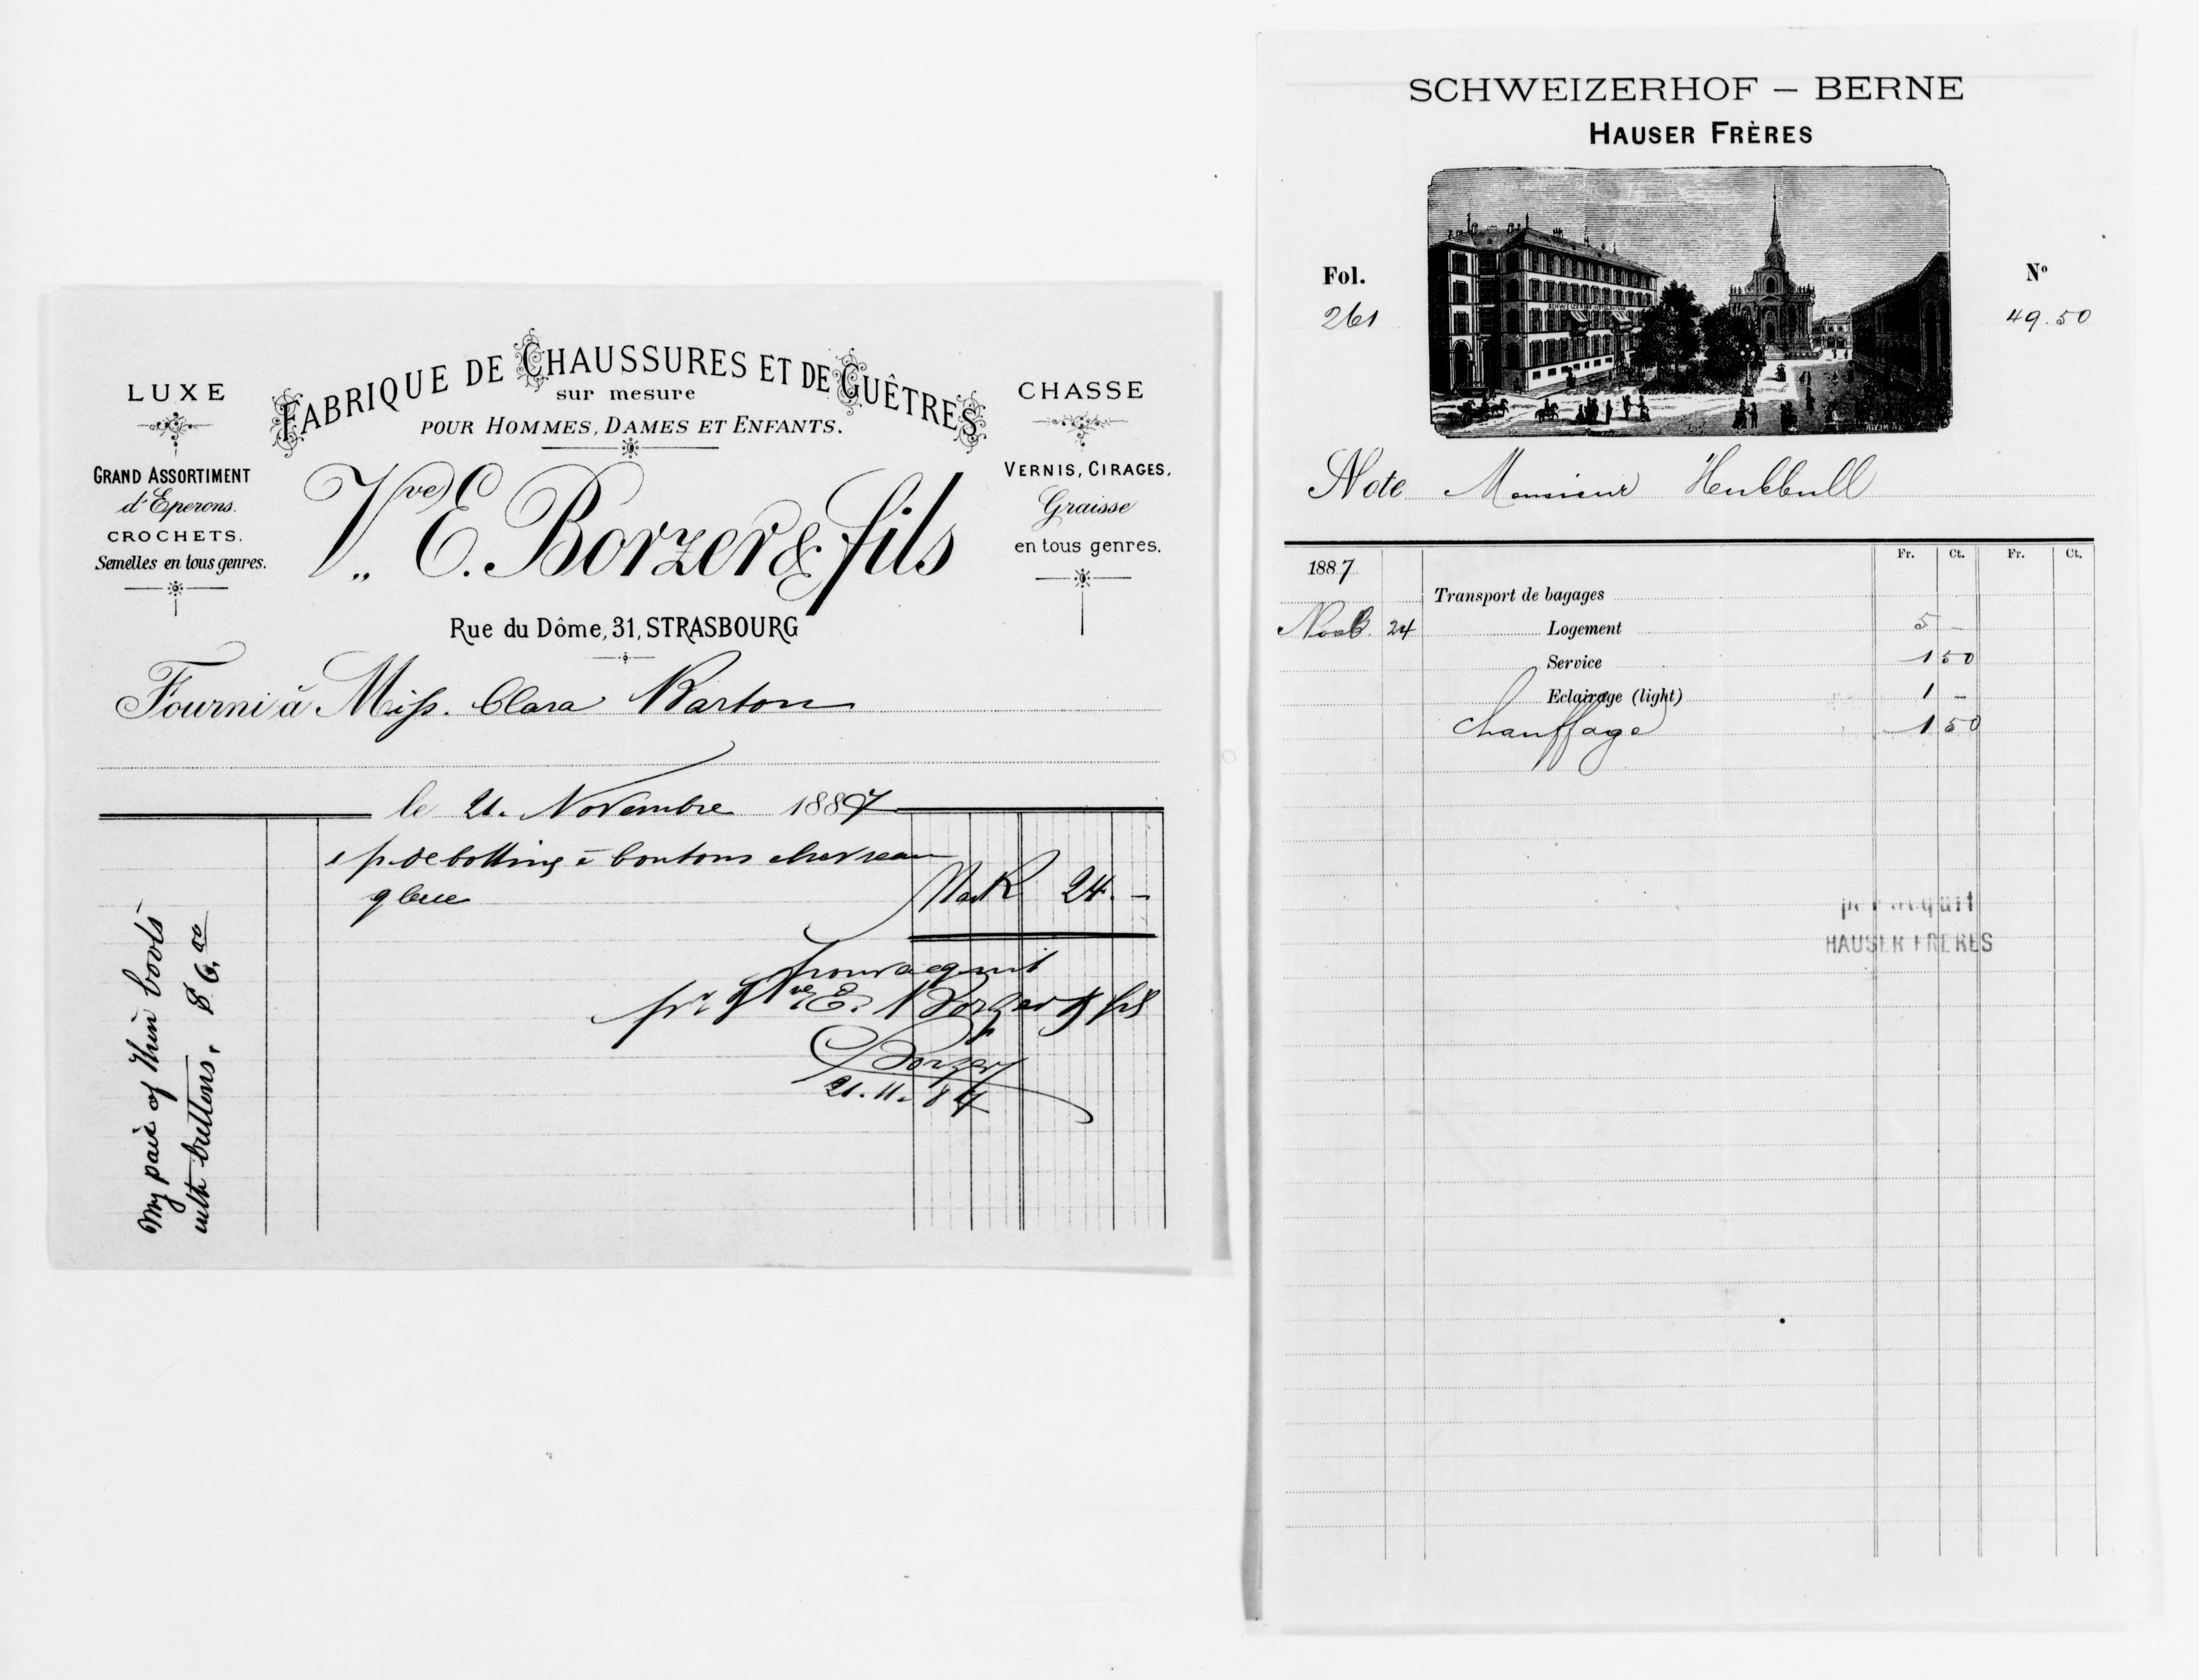 LUXE
GRAND ASSORTIMENT
d'Eperons.
CROCHETS.
Semelles en tous genres.
FABRIQUE DE CHAUSSURES ET DE GUÊTRES
sur mesure
POUR HOMMES, DAMES ET ENFANTS.
Vve E. Borzer & fils
Rue du Dôme, 31, STRASBOURG
CHASSE
VERNIS, CIRAGES.
Graisse
en tous genres.
Fourni à Miss. Clara Barton
le 21. Novembre 1887
1 p. de bottine à boutons chevreau
glacé
Mark 24. –
pour acquit
pr Vve E. Borzer & fils
Borzer
21.11.87
My pair of thin boots
with buttons. $6.00
SCHWEIZERHOF – BERNE
HAUSER FRÈRES
Fol.
261
No
49.50
Note Monsieur
Fr. Ct. Fr. Ct.
1887
Transport de bagages
24 Logement 5 –
Service 1 50
Eclairage (light) 1 –
Chauffage 1 50
pour acquit
HAUSER FRERES